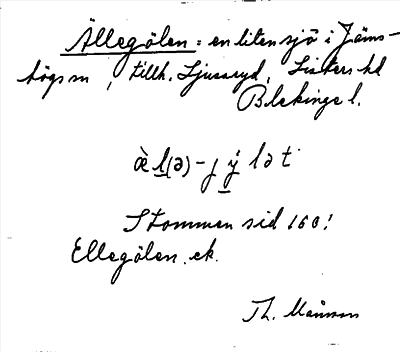 Ällegölen = en liten sjö i Jäms-
högs sn, tillh. Ljusaryd, Listers hd
Blekinge l.
Stommen sid 160!
Ellegölen. ek.
Th.